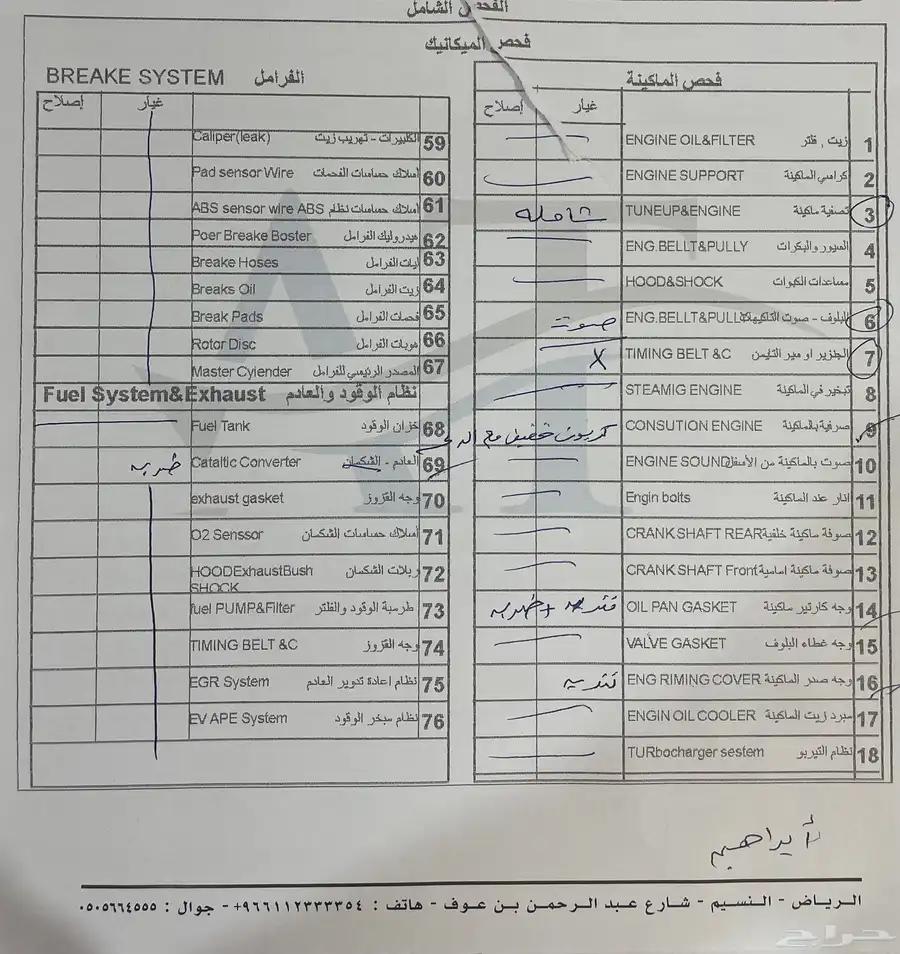 الفحص الشامل
فحص الميكانيك
فحص الماكينة
غيار إصلاح
1 زيت , فلتر ENGINE OIL&FILTER
2 كراسي الماكينة ENGINE SUPPORT
3 تصفية ماكينة TUNEUP&ENGINE شامله
4 السيور والبكرات ENG.BELLT&PULLY
5 مساعدات الكبوات HOOD&SHOCK
6 البلوف - صوت التاكيهات ENG.BELLT&PULLY صوت
7 الجنزير او سير التايمن TIMING BELT &C X
8 تبخير في الماكينة STEAMIG ENGINE
9 صرفية بالماكينة CONSUTION ENGINE كربون خفيف مع
10 صوت بالماكينة من الأسفل ENGINE SOUND
11 انار عند الماكينة Engin bolts
12 صوفة ماكينة خلفية CRANK SHAFT REAR
13 صوفة ماكينة امامية CRANK SHAFT Front
14 وجه كارتير ماكينة OIL PAN GASKET + ضربه
15 وجه غطاء البلوف VALVE GASKET
16 وجه صدر الماكينة ENG RIMING COVER
17 مبرد زيت الماكينة ENGIN OIL COOLER
18 نظام التيربو TURbocharger sestem
الفرامل BREAKE SYSTEM
غيار إصلاح
59 الكليبرات - تهريب زيت Caliper(leak)
60 اسلاك حساسات الفحمات Pad sensor Wire
61 اسلاك حساسات نظام ABS ABS sensor wire
62 هيدروليك الفرامل Poer Breake Boster
63 ليات الفرامل Breake Hoses
64 زيت الفرامل Breaks Oil
65 فحمات الفرامل Break Pads
66 هوبات الفرامل Rotor Disc
67 المصدر الرئيسي للفرامل Master Cyiender
نظام الوقود والعادم Fuel System&Exhaust
68 خزان الوقود Fuel Tank
69 العادم - الشكمان Cataltic Converter ضربه
70 وجه القزوز exhaust gasket
71 أسلاك حساسات الشكمان O2 Senssor
72 ربلات الشكمان HOODExhaustBush
SHOCK
73 طرمبة الوقود والفلتر fuel PUMP&Filter
74 وجه القزوز TIMING BELT &C
75 نظام اعادة تدوير العادم EGR System
76 نظام مبخر الوقود EV APE System
الرياض - النسيم - شارع عبد الرحمن بن عوف - هاتف : ٩٦٦١١٢٣٣٣٣٥٤+ - جوال : ٠٥٠٥٦٦٤٥٥٥
حراج